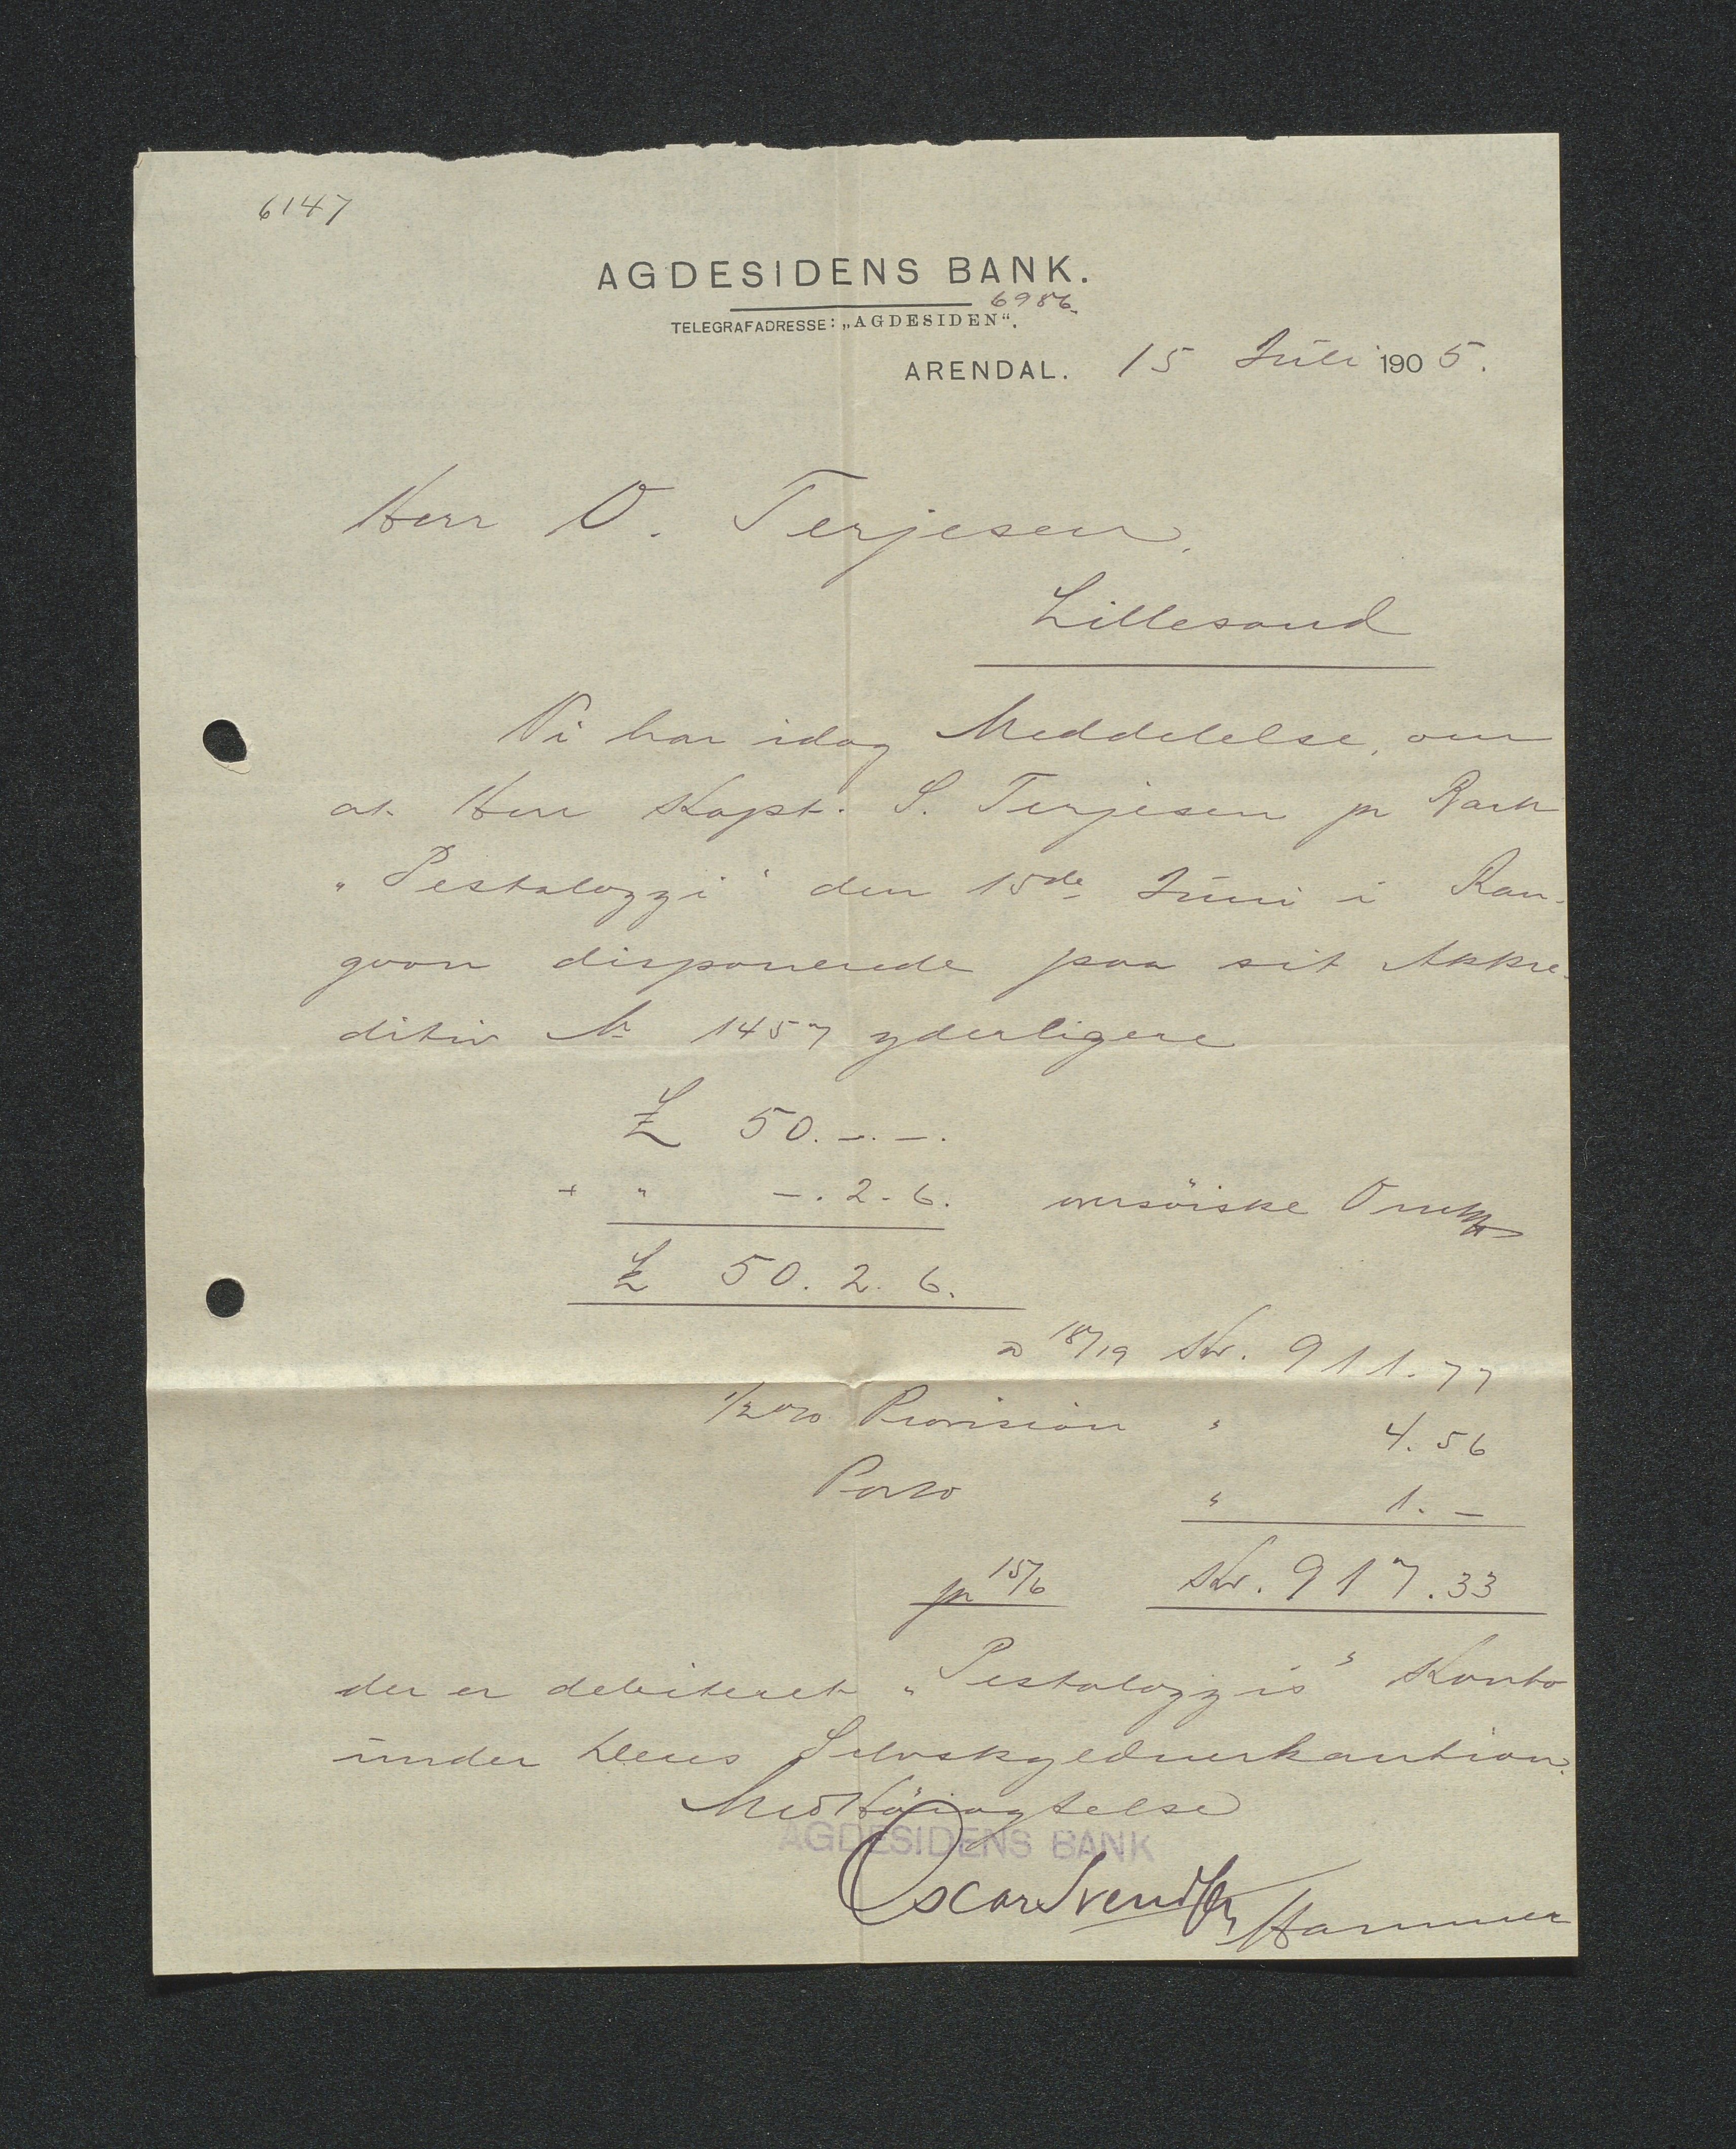 6147
AGDESIDENS BANK.
6986.
TELEGRAFADRESSE: „AGDESIDEN“.
ARENDAL. 15 Juli 1905.
Herr O. Terjesen.
Lillesand
Vi har idag Meddelelse, om
at Herr Kapt. S. Terjesen pr Bark
„Pestalozzi“ den 15de Juni i Ran-
goon disponerede paa sit Akkre-
ditiv № 1457 yderligere
£ 50.-.-.
+ " -.2-6. oversöiske Omk
£ 50.2.6.
a 18/19 Kr. 911.77
1/2 % Provision " 4.56
Porto " 1.-
pr 15/6 Kr. 917.33
der er debiteret „Pestalozzis“ Konto
under Deres Selvskyldnerkaution.
Med Höiagtelse
AGDESIDENS BANK
Oscar Svendsen Hammer